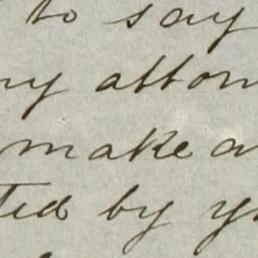 to say
ny attorn
make a
ted by yo